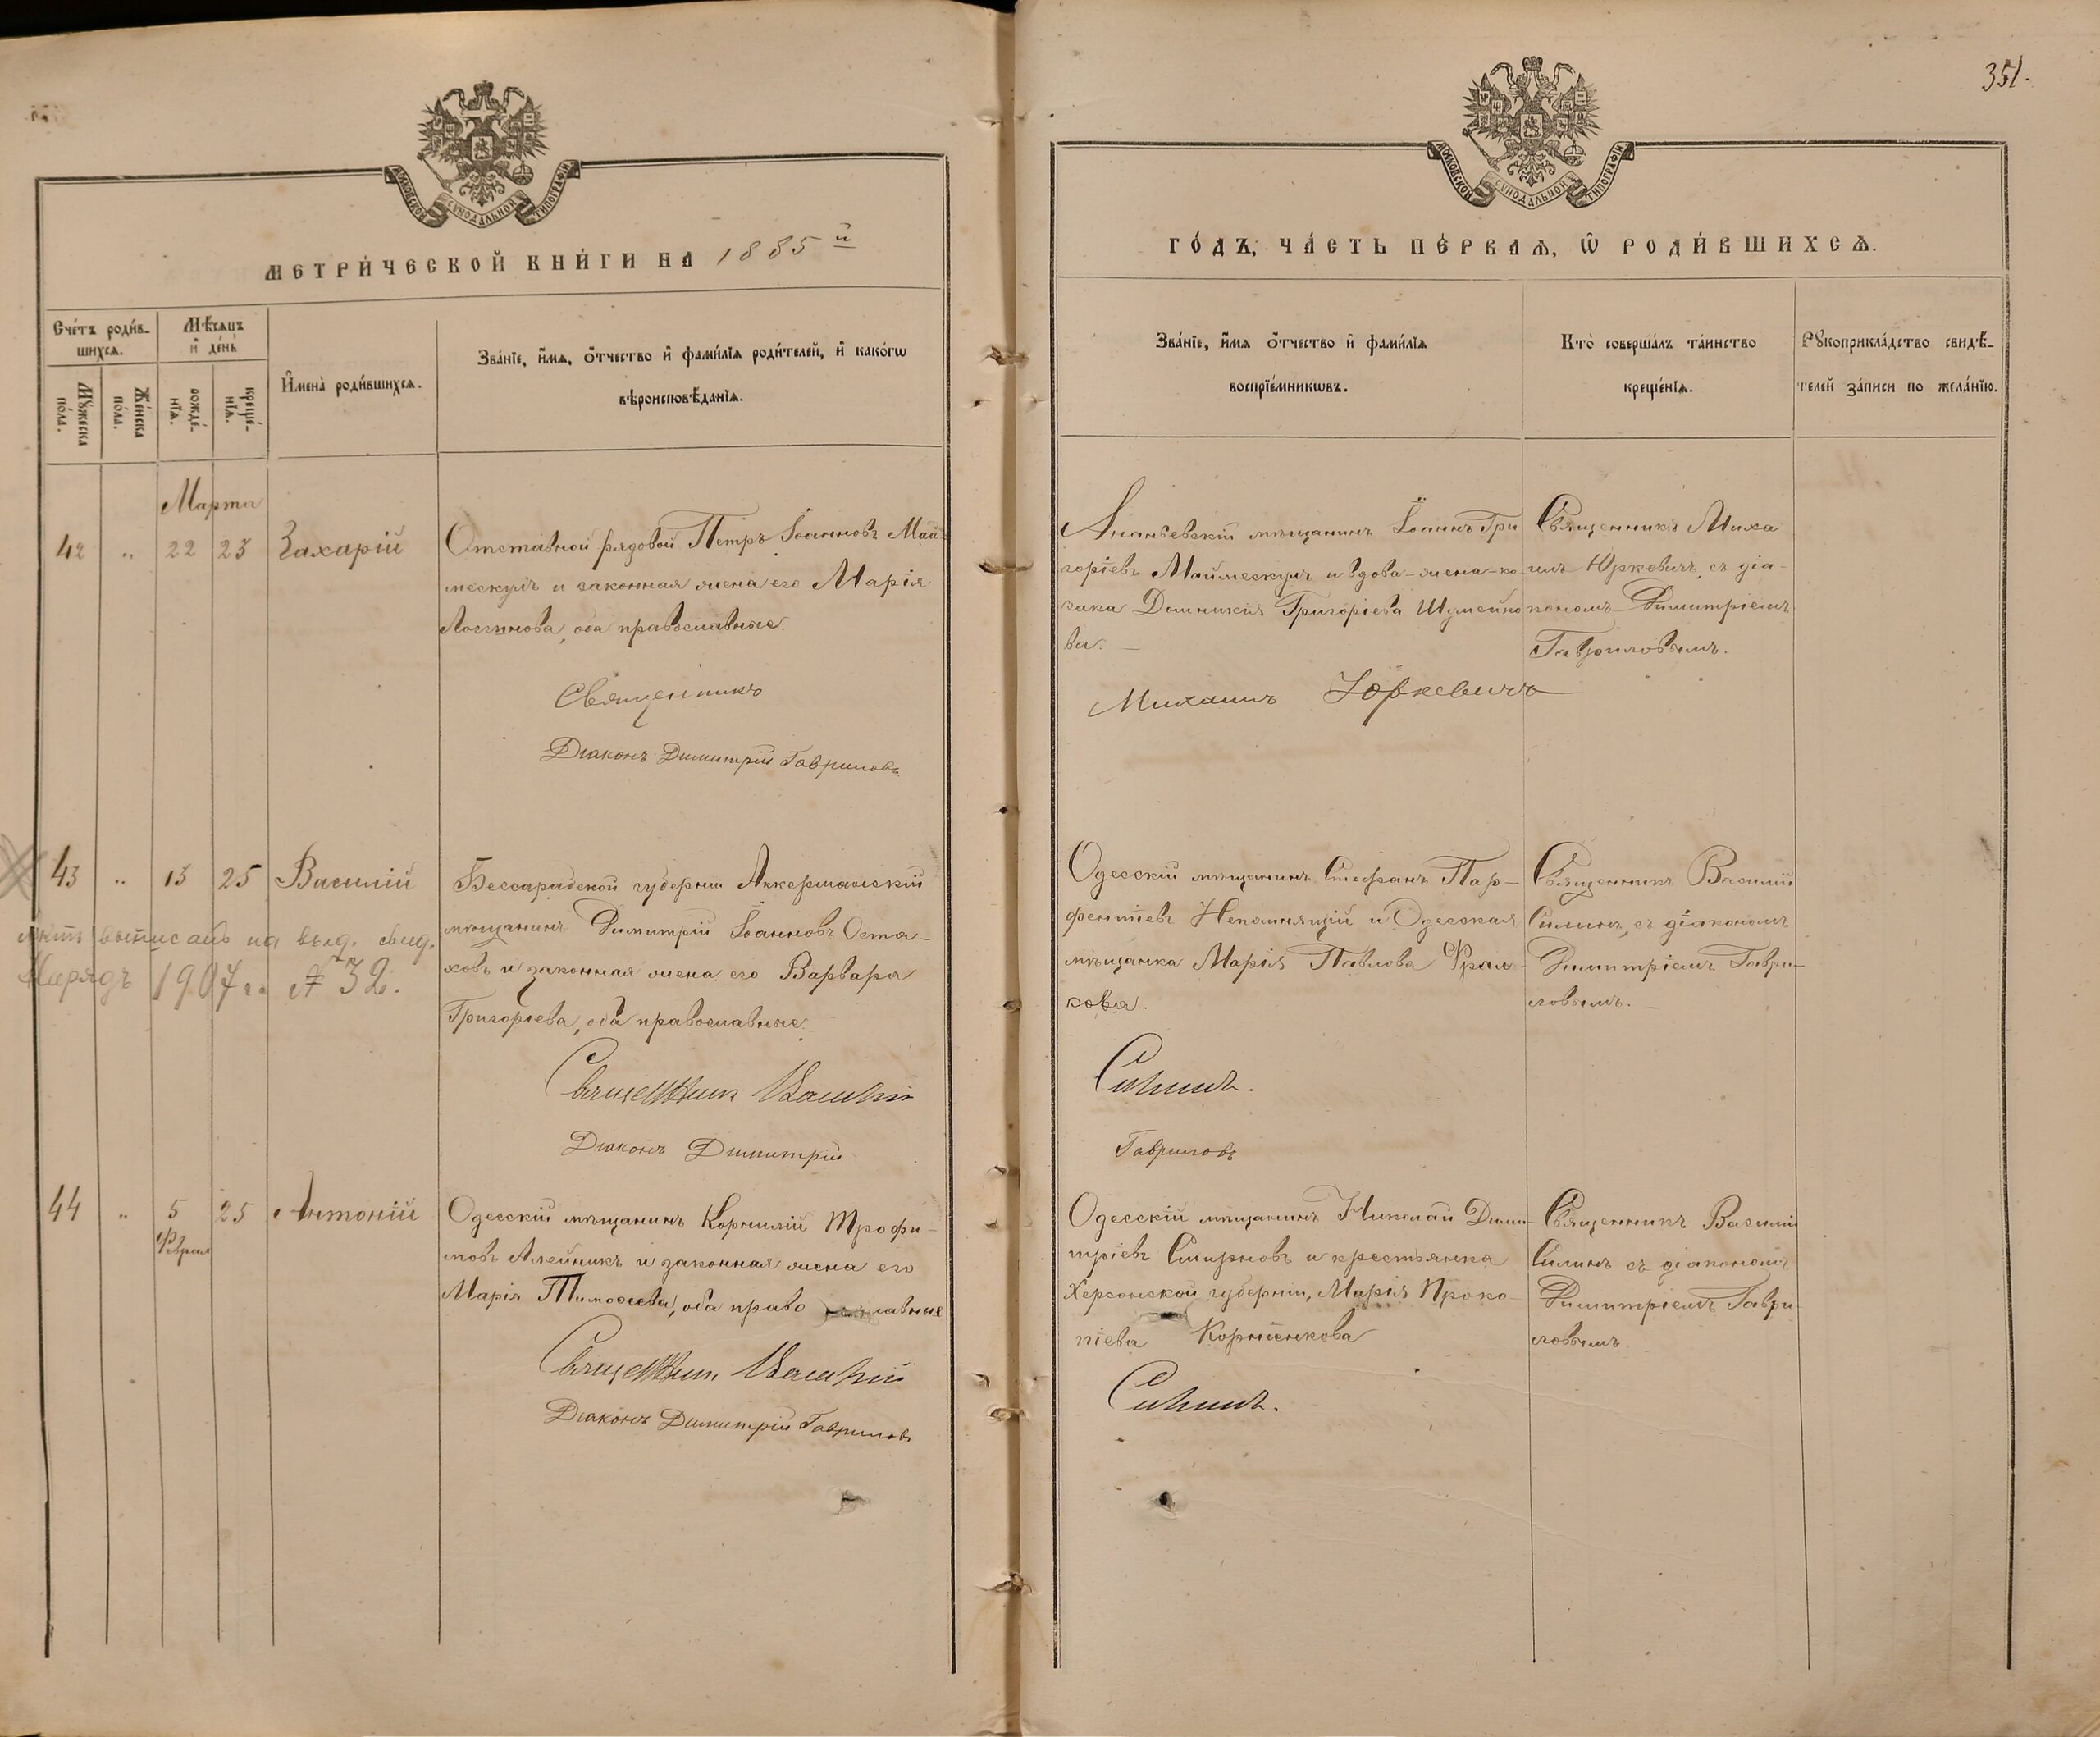 351.
МОСКОВСКОЙ СѴНОДАЛЬНОЙ ТИПОГРАФІИ
МОСКОВСКОЙ СѴНОДАЛЬНОЙ ТИПОГРАФІИ
МЕТРИ́ЧЕСКОЙ КНИ́ГИ НА 1885 й
ГО́ДЪ, ЧА́СТЬ ПЕ́РВАѦ, Ѡ҆ РОДИ́ВШИХСѦ.
Сче́тъ роди́в-
шихсѧ.
Мꙋ́жеска по́ла.
Же́нска по́ла.
Мѣ́сѧцъ
и҆ де́нь
рожде́-
нїѧ.
креще́-
нїѧ.
И҆мена̀ роди́вшихсѧ.
Зва́нїе, и҆́мѧ, ѻ҆́тчество и҆ фами́лїѧ роди́телей, и҆ како́гѡ
вѣроисповѣ́данїѧ.
Зва́нїе, и҆́мѧ ѻ҆́тчество и҆ фами́лїѧ
воспрїе́мникѡвъ.
Кто̀ соверша́лъ та́инство
креще́нїѧ.
Рꙋкоприкла́дство свидѣ́-
телей за́писи по жела́нїю.
Марта
42 „ 22 23 Захарій
Отставной рядовой Петръ Іоанновъ Май-
мескулъ и законная жена его Марія
Логгинова, оба православные.
Священникъ
Діаконъ Димитрій Гавриловъ
Ананьевскій мѣщанинъ Іоаннъ Гри
горіевъ Маймескулъ и вдова-жена-ко-
зака Домникія Григоріева Шумейко
ва. —
Михаилъ Юркевичъ
Священникъ Миха
илъ Юркевичъ, съ діа-
кономъ Димитріемъ
Гавриловымъ.
43 „ 13 25 Василій
выписанъ на выд. свид.
Нарядъ 1907 г. № 32.
Бессарабской губерніи Аккерманскій
мѣщанинъ Димитрій Іоанновъ Оста-
ховъ и законная жена его Варвара
Григоріева, оба православные.
Священникъ Василій
Діаконъ Димитрій
Одесскій мѣщанинъ Стефанъ Пар-
фентіевъ Непомнящій и Одесская
мѣщанка Марія Павлова Фрал-
кова.
Силинъ.
Гавриловъ
Священникъ Василій
Силинъ, съ діакономъ
Димитріемъ Гаври-
ловымъ. —
44 „ 5 25 Антоній
Февраля
Одесскій мѣщанинъ Корнилій Трофи-
мовъ Алейникъ и законная жена его
Марія Тимоѳеева, оба право славные
Священникъ Василій
Діаконъ Димитрій Гавриловъ
Одесскій мѣщанинъ Николай Дими-
тріевъ Смирновъ и крестьянка
Херсонской губерніи, Марія Проко-
піева Корніенкова
Силинъ.
Священникъ Василій
Силинъ съ діакономъ
Димитріемъ Гаври-
ловымъ